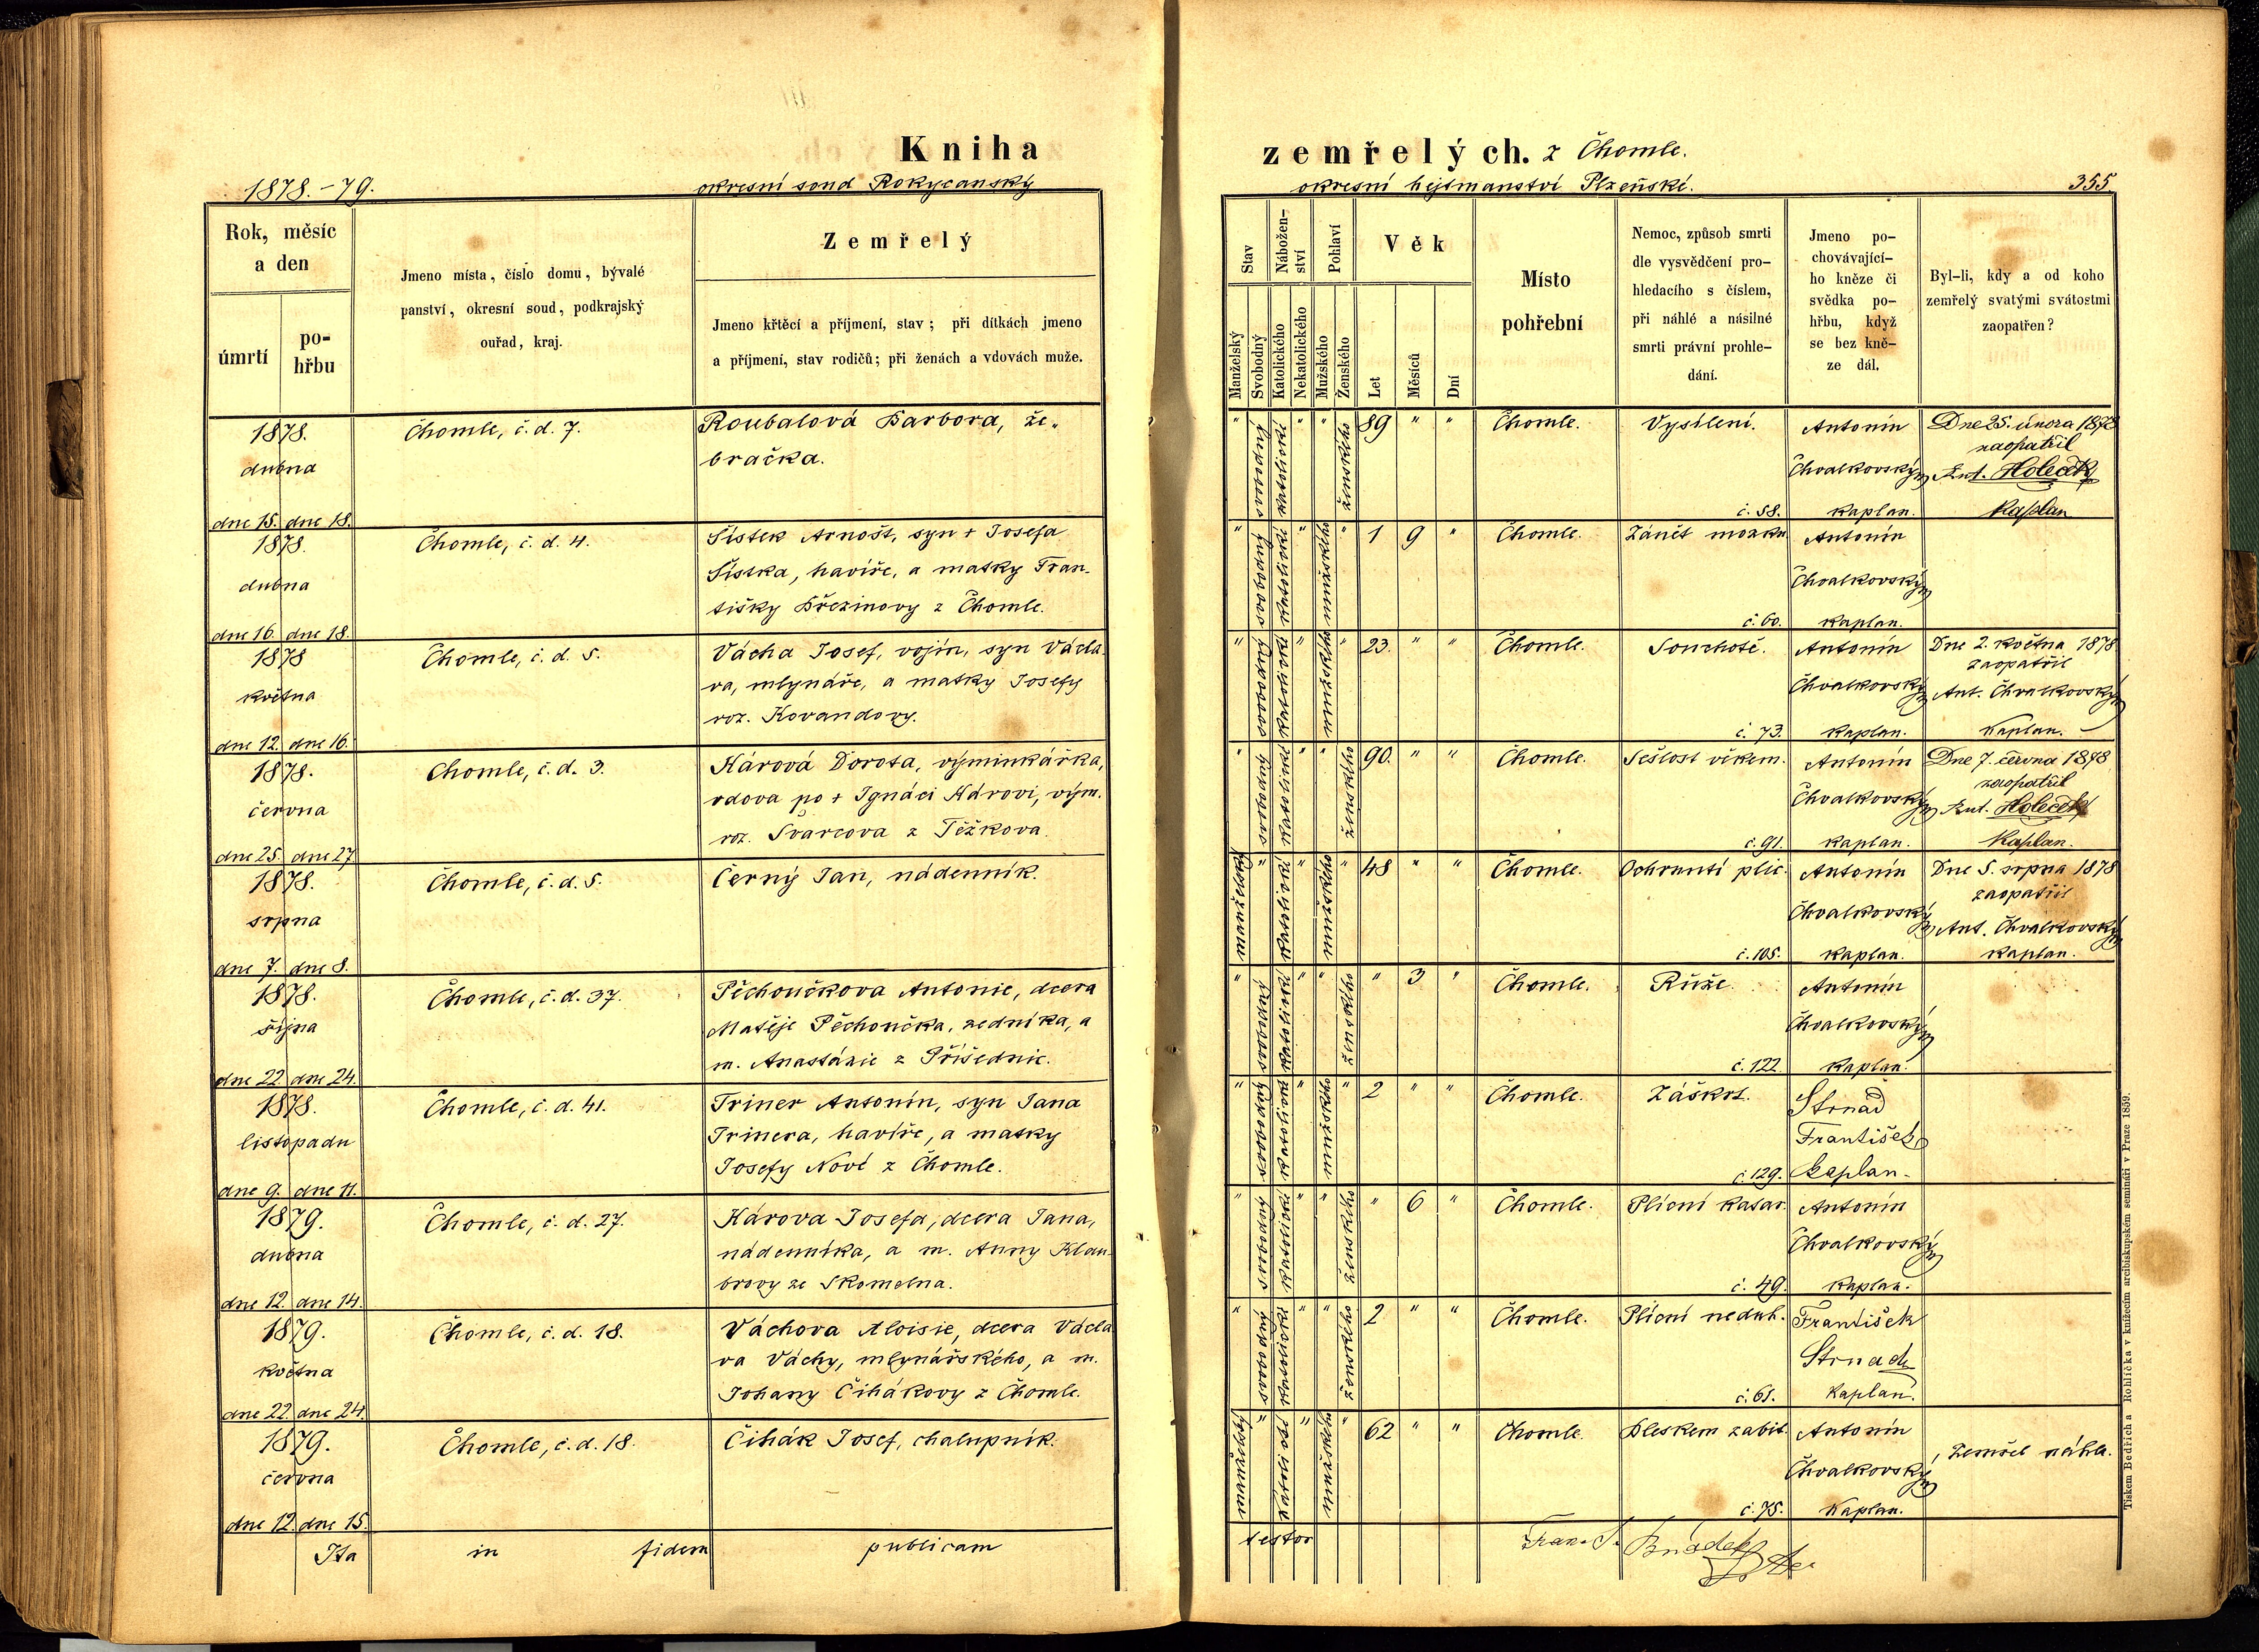 Kniha
zemřelých. z Chomle.
1878.-79.
okresní soud Rokycanský
okresní hejtmanství Plzeňské.
355.
Rok, měsíc
a den
úmrtí
po-
hřbu
Jmeno místa, číslo domu, bývalé
panství, okresní soud, podkrajský
ouřad, kraj.
Zemřelý
Jmeno křtěcí a příjmení, stav; při dítkách jmeno
a příjmení, stav rodičů; při ženách a vdovách muže.
Stav
Manželský
Svobodný
Nábožen-
ství
Katolického
Nekatolického
Pohlaví
Mužského
Ženského
Věk
Let
Měsíců
Dní
Místo
pohřební
Nemoc, způsob smrti
dle vysvědčení pro-
hledacího s číslem,
při náhlé a násilné
smrti právní prohle-
dání.
Jmeno po-
chovávající-
ho kněze či
svědka po-
hřbu, když
se bez kně-
ze dál.
Byl-li, kdy a od koho
zemřelý svatými svátostmi
zaopatřen?
1878.
dubna
dne 15. dne 18.
Chomle, č. d. 7.
Roubalová Barbora, že-
bračka.
" svobodný katolické " " ženského 89 " "
Chomle.
Vysílení.
č. 58.
Antonín
Chvalkovský
kaplan.
Dne 25. února 1878
zaopatřil
Ant. Holeček
Kaplan
1878.
dubna
dne 16. dne 18.
Chomle, č. d. 4.
Šístek Arnošt, syn + Josefa
Šístka, havíře, a matky Fran-
tišky Březinovy z Chomle.
" svobodný katolické " mužského " 1 9 "
Chomle.
Zánět mozku
č. 60.
Antonín
Chvalkovský
kaplan.
1878
května
dne 12. dne 16.
Chomle, č. d. 5.
Vácha Josef, vojín, syn Václa-
va, mlynáře, a matky Josefy
roz. Kovandovy.
" svobodný katolické " mužského " 23. " "
Chomle.
Souchotě.
č. 73.
Antonín
Chvalkovský
kaplan.
Dne 2. května 1878
zaopatřil
Ant. Chvalkovský
Kaplan.
1878.
června
dne 25. dne 27
Chomle, č. d. 3.
Kárová Dorota, výminkářka,
vdova po + Ignáci Károvi, vým.
roz. Švarcova z Těžkova.
" svobodný katolické " " ženského 90. " "
Chomle.
Sešlost věkem.
č. 91.
Antonín
Chvalkovský
kaplan.
Dne 7. června 1878
zaopatřil
Ant. Holeček
Kaplan.
1878.
srpna
dne 7. dne 8.
Chomle, č. d. 5.
Černý Jan, nádenník.
manželský " katolické " mužského " 48 " "
Chomle.
Ochrnutí plic.
č. 105.
Antonín
Chvalkovský
kaplan.
Dne 5. srpna 1878
zaopatřil
Ant. Chvalkovský
kaplan.
1878.
října
dne 22 dne 24.
Chomle, č. d. 37.
Pěchoučkova Antonie, dcera
Matěje Pěchoučka, zedníka, a
m. Anastázie z Příšednic.
" svobodný katolické " " ženského " 3 "
Chomle.
Růže.
č. 122.
Antonín
Chvalkovský
kaplan.
1878.
listopadu
dne 9. dne 11.
Chomle, č. d. 41.
Triner Antonín, syn Jana
Trinera, havíře, a matky
Josefy Nové z Chomle.
" svobodný katolické " mužského " 2 " "
Chomle.
Záškrt.
č. 129.
Strnad
František
kaplan.
1879.
dubna
dne 12. dne 14.
Chomle, č. d. 27.
Károva Josefa, dcera Jana,
nádenníka, a m. Anny Klau-
brovy ze Skomelna.
" svobodný katolické " " ženského " 6 "
Chomle.
Plicní katar.
č. 49.
Antonín
Chvalkovský
kaplan.
1879.
května
dne 22. dne 24.
Chomle, č. d. 18.
Váchova Aloisie, dcera Václa-
va Váchy, mlynářského, a m.
Johany Čihákovy z Chomle.
" svobodný katolické " " ženského 2 " "
Chomle.
Plicní neduh.
č. 61.
František
Strnad
kaplan.
1879.
června
dne 12. dne 15.
Chomle, č. d. 18.
Čihák Josef, chalupník.
manželský " katolické " mužského " 62 " "
Chomle.
Bleskem zabit.
č. 75.
Antonín
Chvalkovský
Kaplan.
Zemřel náhle.
Ita in fidem publicam
testor
Tiskem Bedřicha Rohlíčka v knížecím arcibiskupském semináři v Praze 1859.